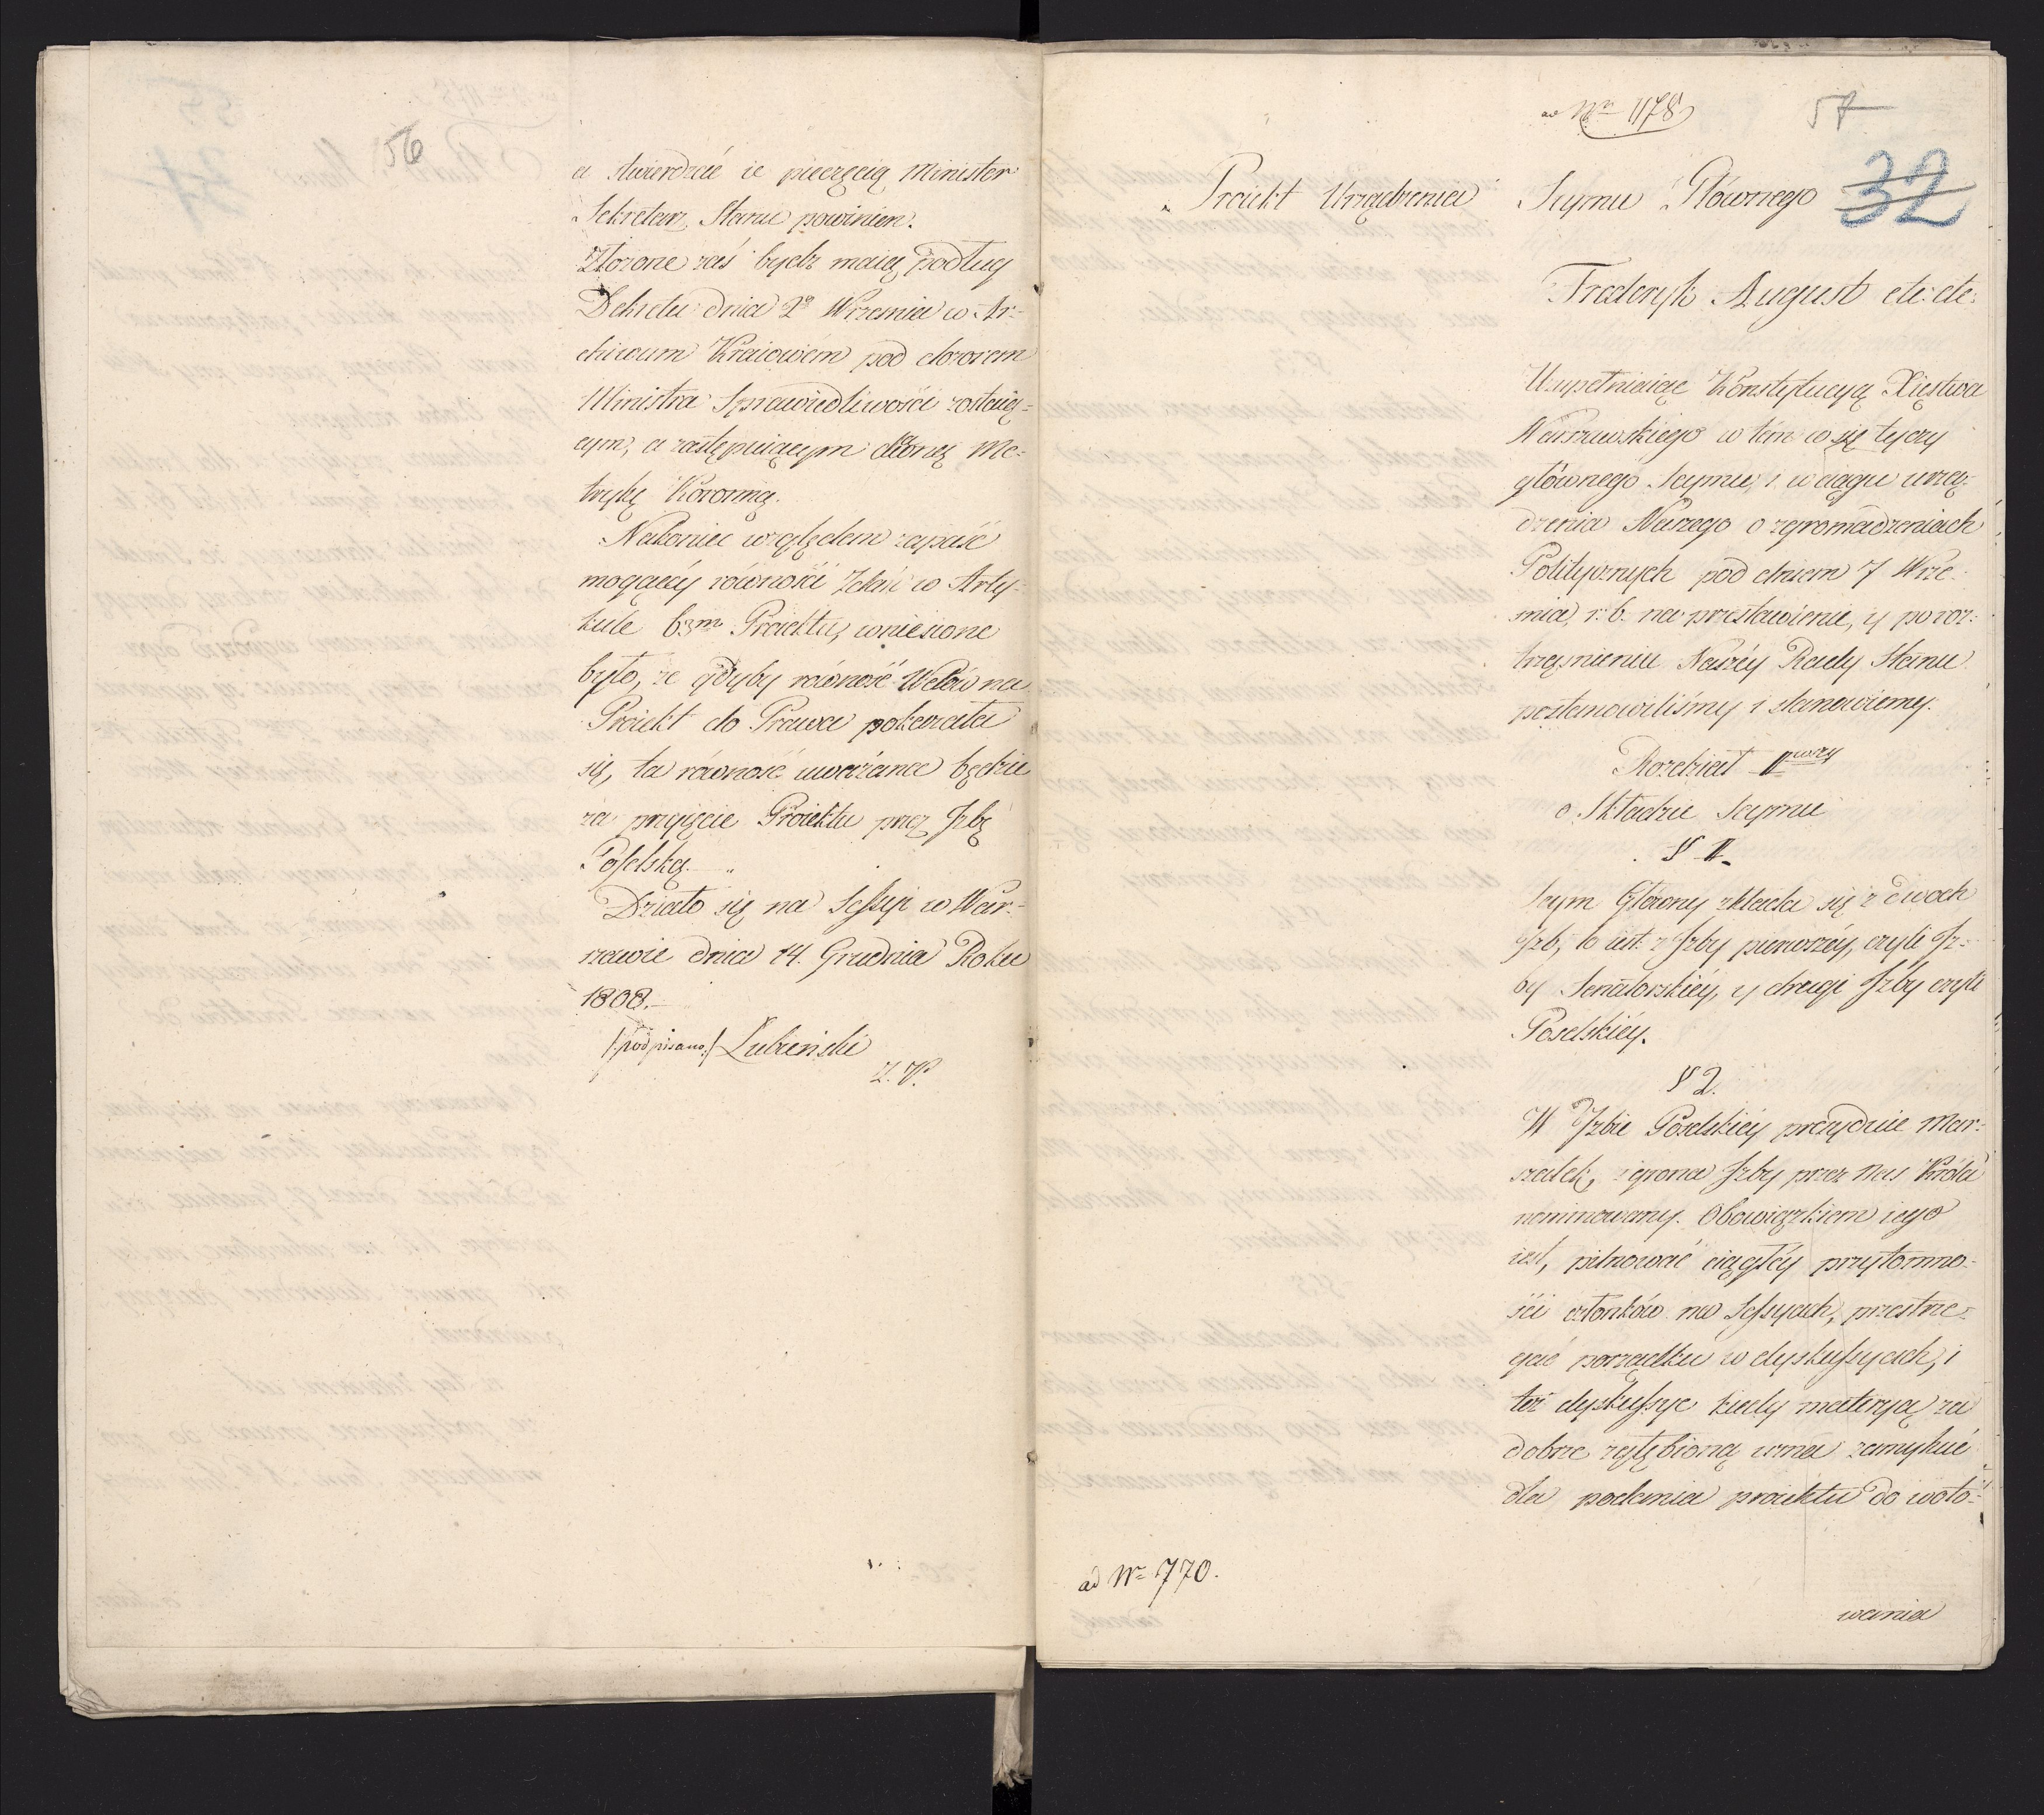 56
a stwierdzać ie pieczęcią Minister
Sekretarz Stanu powinien.
Złożone zaś bydź maią podług
Dekretu dnia 2º Wrzesnia w Ar-
chiwum Kraiowem pod dozorem
Ministra Sprawiedliwości zostaią-
cym, a zastępuiącym dawną Me-
trykę Koronną.
Nakoniec względem zayść
mogącéy równości zdań w Arty-
kule 63m Proiektu, wniesione
było, że gdyby równość Wotów na
Proiekt do Prawa pokazała
się, ta równość uważana będzie
za przyięcie Proiektu przez Jzbę
Poselską.
Działo się na Sessyi w War-
szawie dnia 14. Grudnia Roku
1808.
/:podpisano:/ Lubieński
Z. P.
ad Nr 1178
57
32
Proiekt Urządzenia Seymu Głównego
Frederyk August etc: etc:
Uzupełniaiąc Konstytucyą Xięstwa
Warszawskiego w tém co się tyczy
głównego Seymu, i w ciągu urzą-
dzenia Naszego o zgromadzeniach
Politycznych pod dniem 7 Wrze-
snia r: b. na przestawienie, y po roz-
trząśnieniu Naszéy Rady Stanu
postanowiliśmy i stanowiemy.
Rozdział Iwszy
o Składzie Seymu
§ 1.
Seym Główny składa się z dwoch
Jzb, to iest: z Jzby pierwszéy, czyli Jz-
by Senatorskiéy, y drugi Jzby czyli
Poselskiéy.
§ 2.
W Jzbie Poselskiéy prezyduie Mar-
szałek, z grona Jzby przez Nas Króla
nominowany. Obowiązkiem iego
iest, pilnować ciągłéy przytomno-
ści członków na Sessyach, przestrze-
gać porządku w dyskussyach, i
też dyskussye kiedy materyą za
dobrze zgłębioną uzna zamykać
dla podania proiektu do woto-
ad Nr 770.
wania